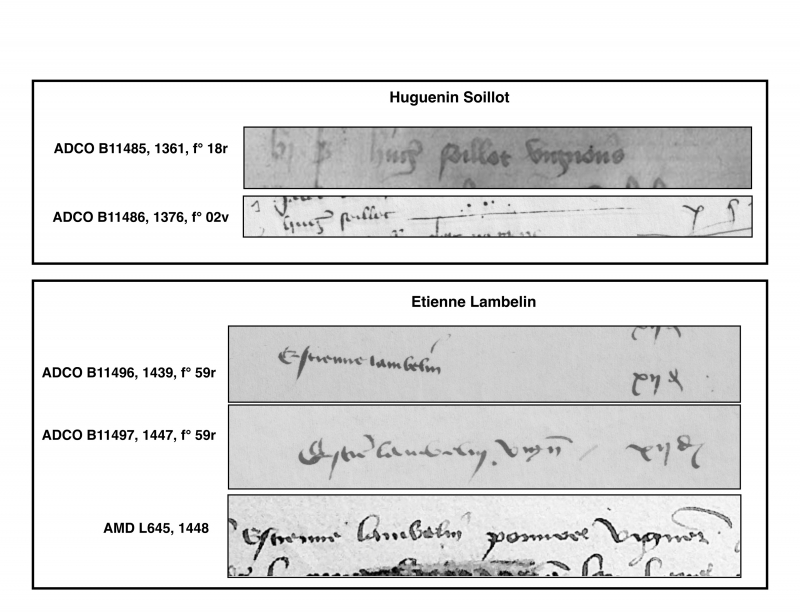 Huguenin Soillot
ADCO B11485, 1361, f° 18r
soillot vignerons
ADCO B11486, 1376, f° 02v
soillot
Etienne Lambelin
ADCO B11496, 1439, f° 59r
Estienne lambelin
xij
ADCO B11497, 1447, f° 59r
lambelin vign
xij
AMD L645, 1448
Estienne lambelin vigneron